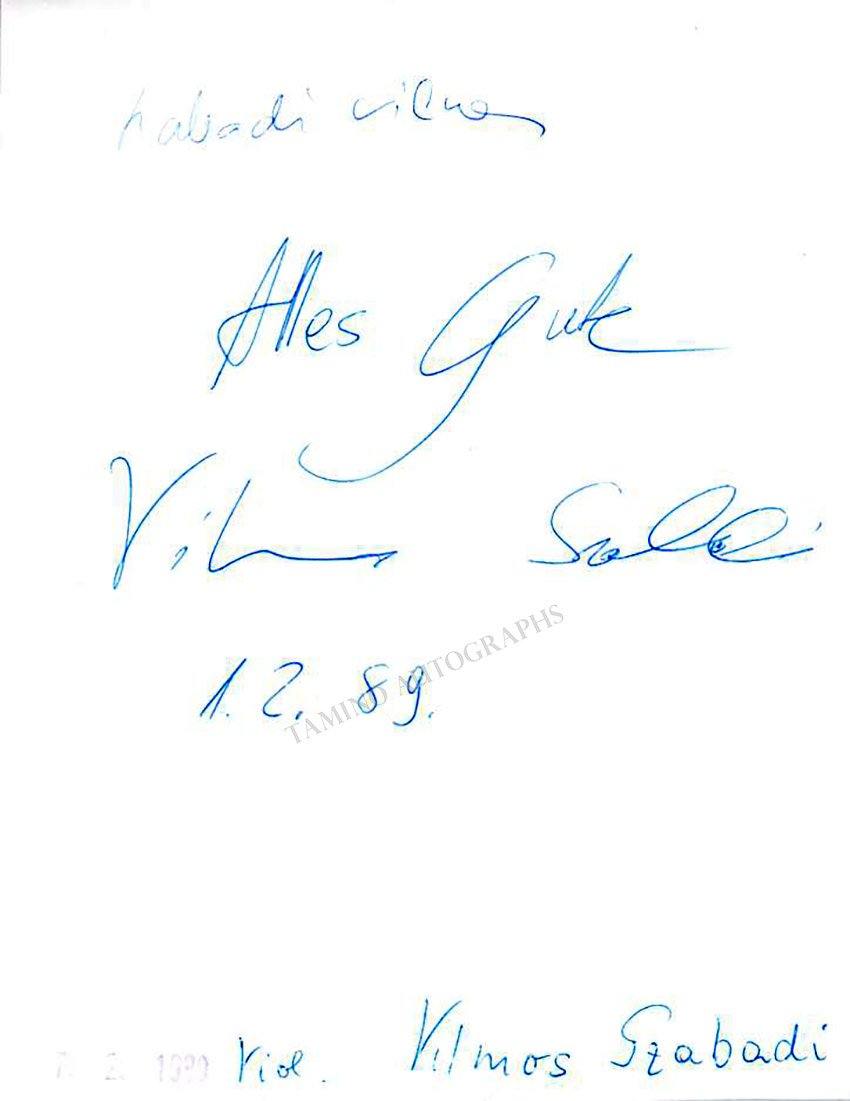 Szabadi Vilmos
Alles Gute
Vilmos Szabadi
1.2.89.
TAMINO AUTOGRAPHS
7. 2. 1989 Viol. Vilmos Szabadi